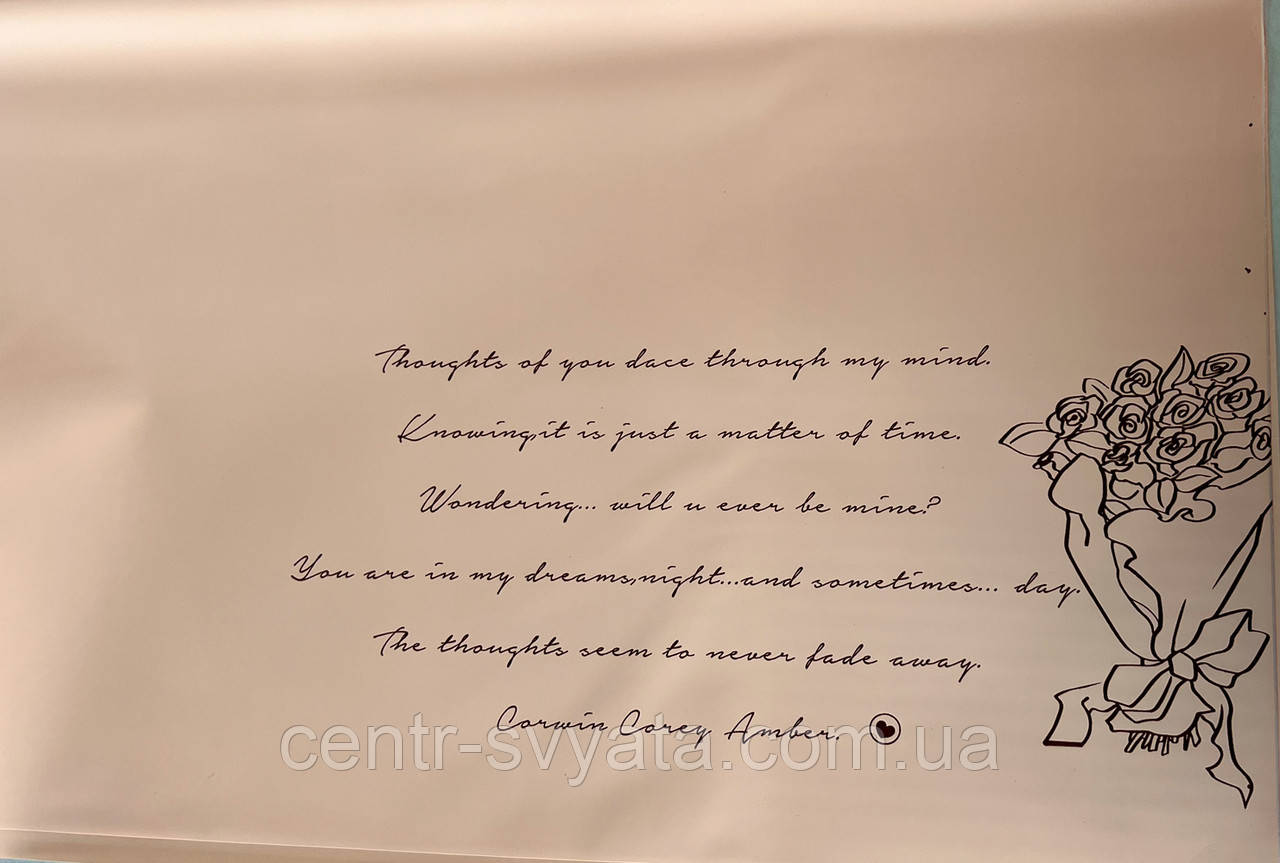 Thoughts of you dace through my mind.
Knowing,it is just a matter of time.
Wondering... will u ever be mine?
You are in my dreams,night...and sometimes... day.
The thoughts seem to never fade away.
Corwin Corey Amber.
centr-svyata.com.ua